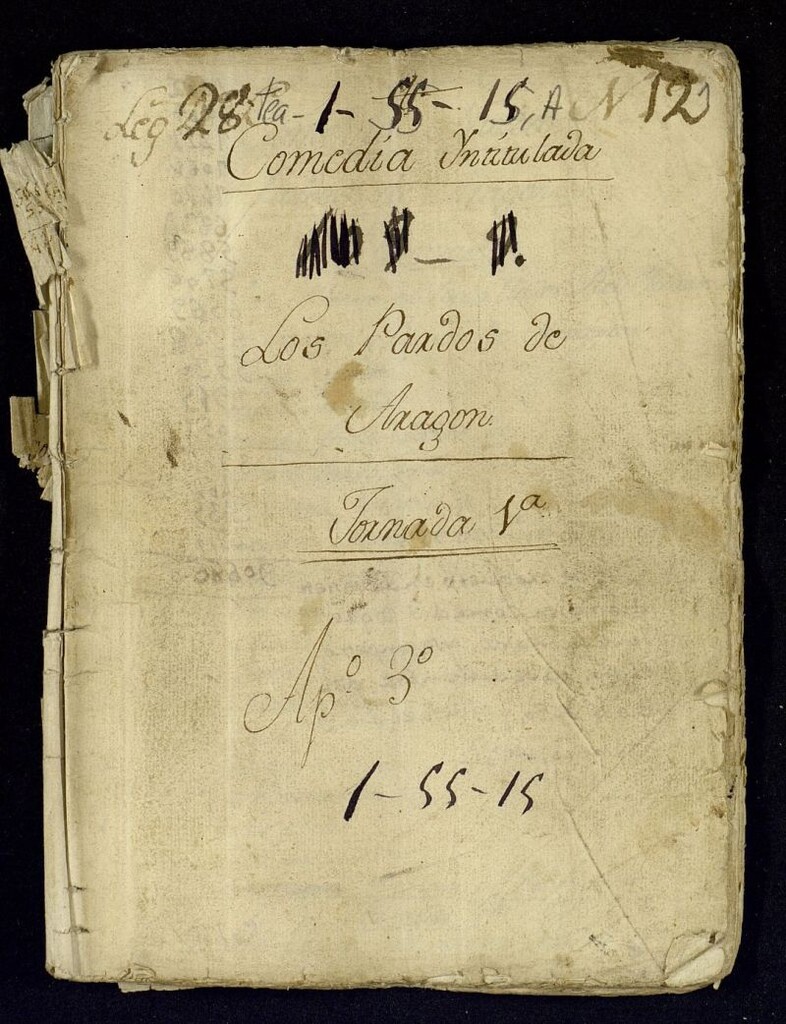 Leg 28 tea - 1 - 55 - 15, A N 12
Comedia Yntitulada
Los Pardos de
Aragon.
Jornada 1ª
Apº 3º
1 - 55 - 15